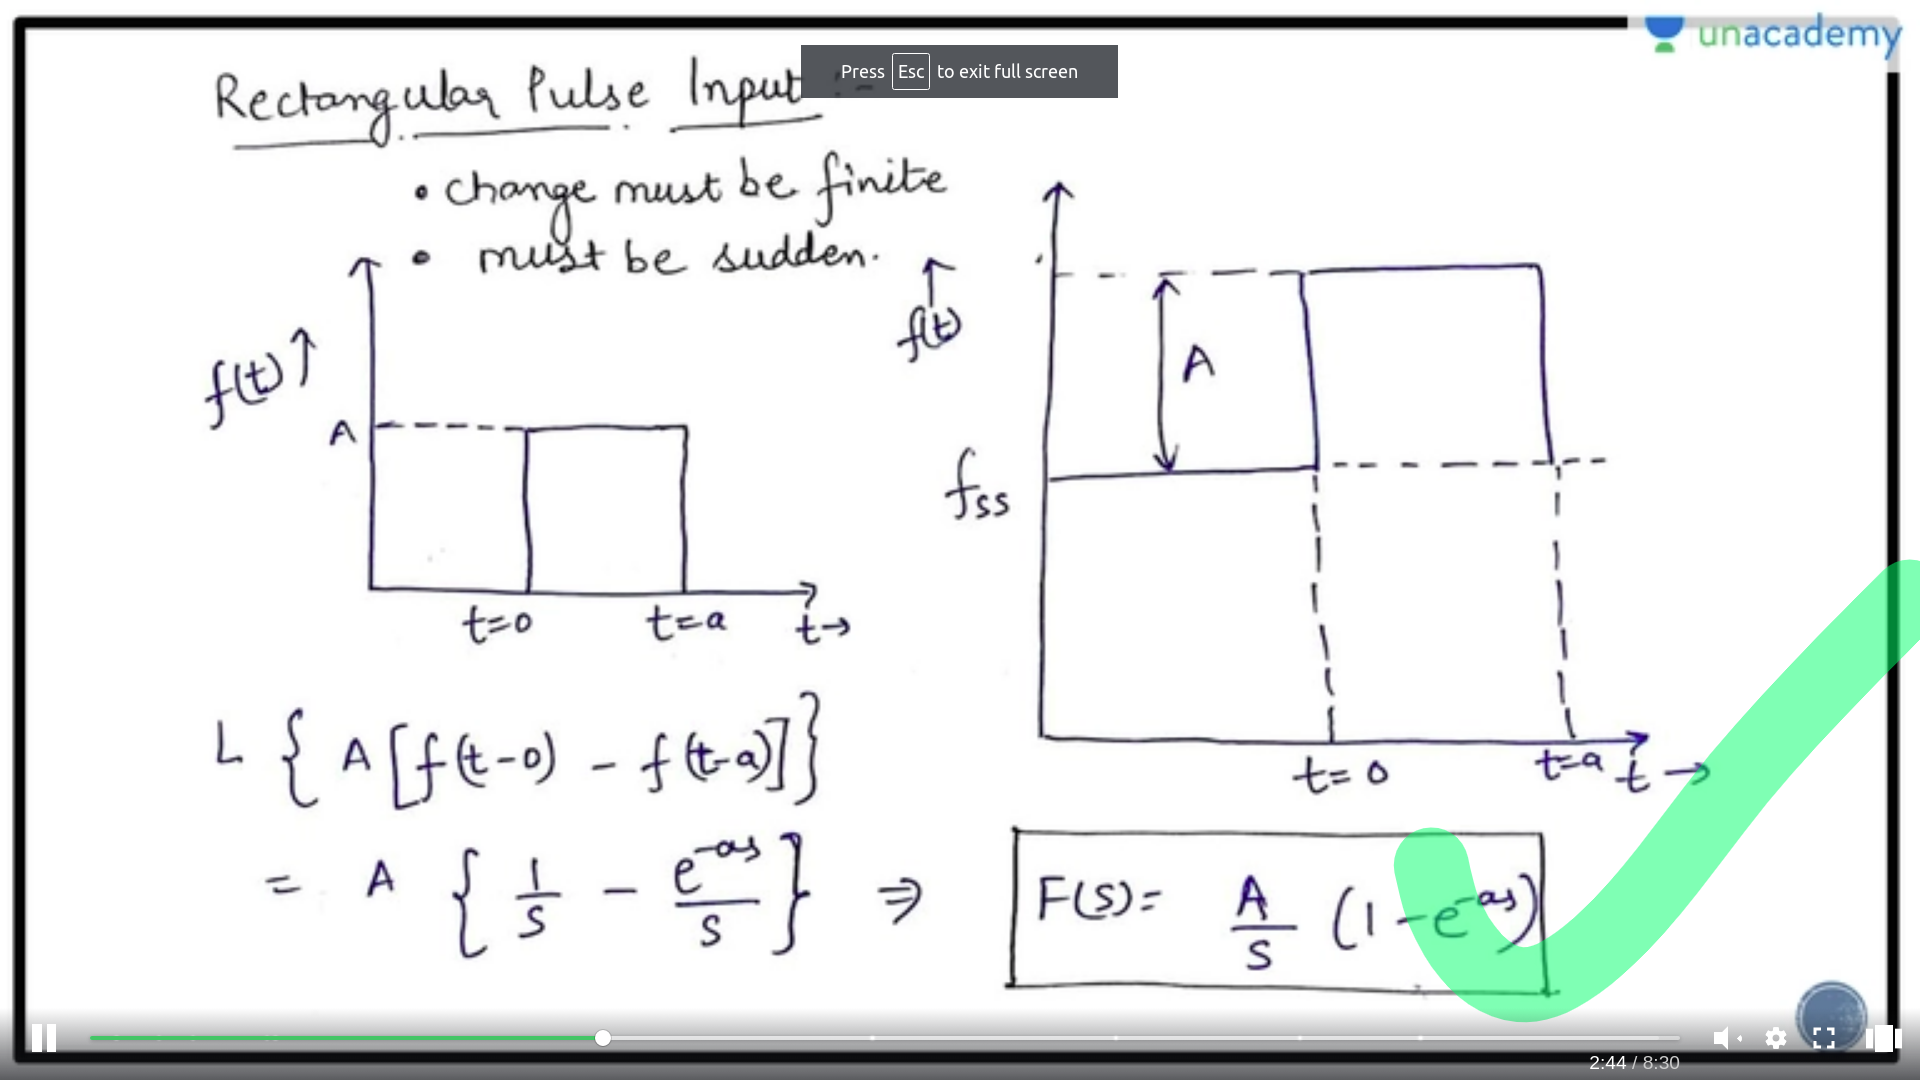 unacademy
Press Esc to exit full screen
Rectangular Pulse Input :-
• change must be finite
• must be sudden.
f(t) ↑
A
t=0
t=a
t→
↑
f(t)
A
fss
t=0
t=a
t →
L { A [f(t-0) - f(t-a)] }
= A { 1/s - e^-as/s } ⇒
F(s) = A/s (1 - e^-as)
2:44 / 8:30